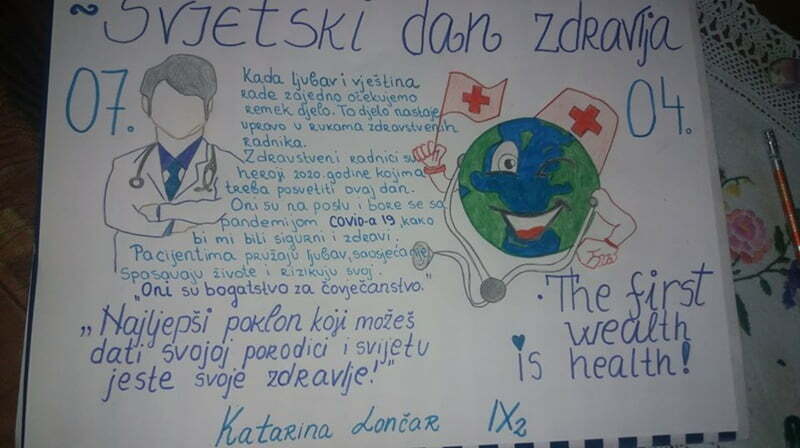 ~ Svjetski dan zdravlja
07.
04.
Kada ljubav i vještina
rade zajedno očekujemo
remek djelo. To djelo nastaje
upravo u rukama zdravstvenih
radnika.
Zdravstveni radnici su
heroji 2020. godine kojima
treba posvetiti ovaj dan.
Oni su na poslu i bore se sa
pandemijom COVID-a 19, kako
bi mi bili sigurni i zdravi.
Pacijentima pružaju ljubav, saosjećanje,
Spasavaju živote i rizikuju svoj.
„Oni su bogatstvo za čovječanstvo."
„Najljepši poklon koji možeš
dati svojoj porodici i svijetu
jeste svoje zdravlje!"
·The first
wealth
is health!
Katarina Lončar IX2